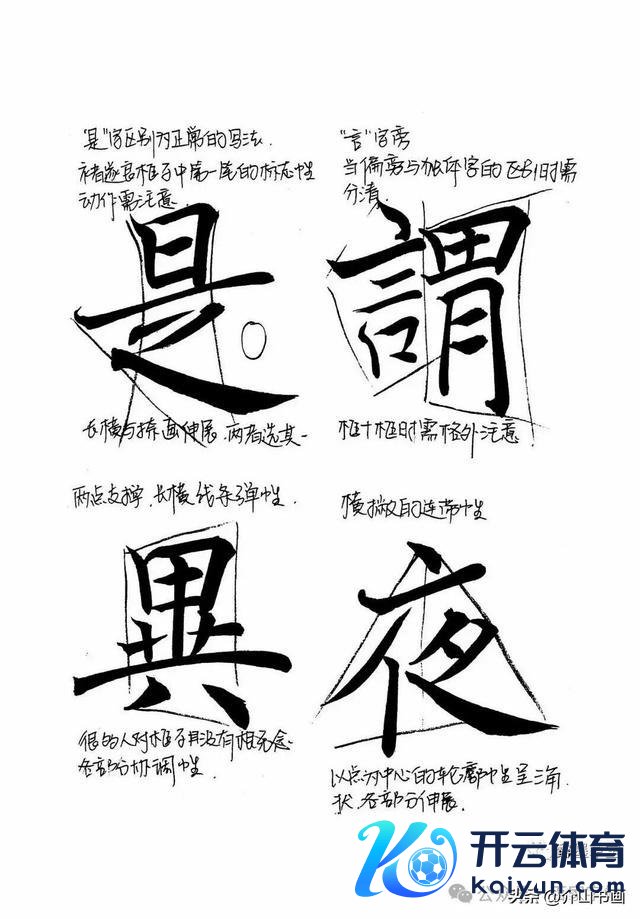 "是"字区别为正常的写法.
褚遂良框子中第一笔的标志性
动作需注意.
是
长横与捺画伸展.两者选其一
"言"字旁
当偏旁与独体字的区别时需
分清.
謂
框十框时需格外注意.
两点支撑.长横线条弹性.
異
很的人对框子耳没有框
各部分协调性.
横撇的连带性
夜
以点为中心的轮廓性呈三角
状.各部分伸展.
开云体育
kaiyun.com
头条@介山书画